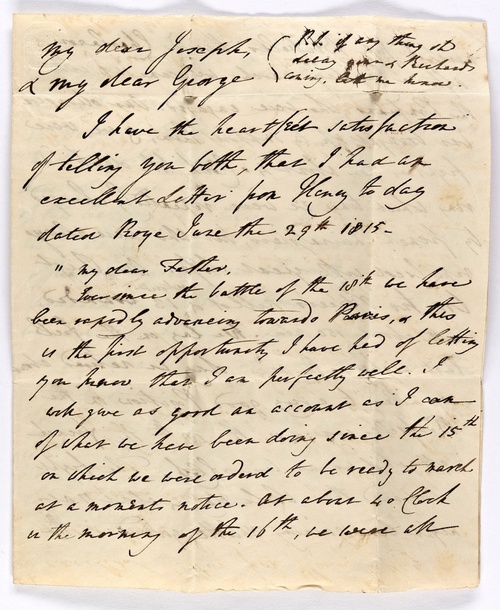 My dear Joseph,
& my dear George
P.S. if any thing sh
delay your & Richards
coming, let me know.
I have the heartfelt satisfaction
of telling you both, that I had an
excellent Letter from Henry to day
dated Roye June the 29th 1815-
" my dear Father.
Ever since the battle of the 18th we have
been rapidly advancing towards Paris, & this
is the first opportunity I have had of letting
you know that I am perfectly well. I
will give as good an account as I can
of what we have been doing since the 15th
on which we were orderd to be ready to march
at a moments notice. At about 4 o Clock
in the morning of the 16th, we were all